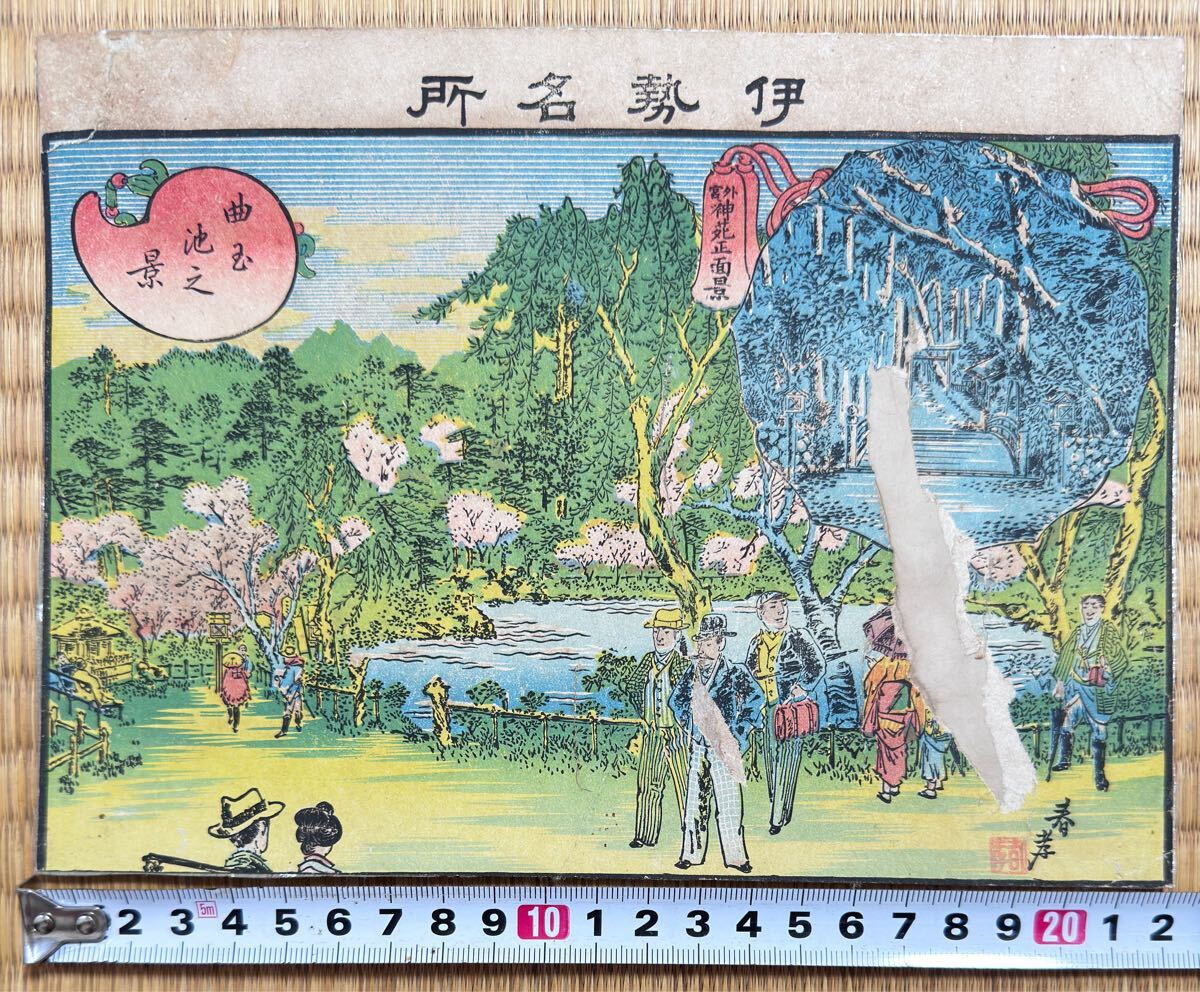 伊勢名所
外宮
神苑正面景
曲玉
池之
景
春孝
2 3 4 5 6 7 8 9 10 1 2 3 4 5 6 7 8 9 20 1 2
5m